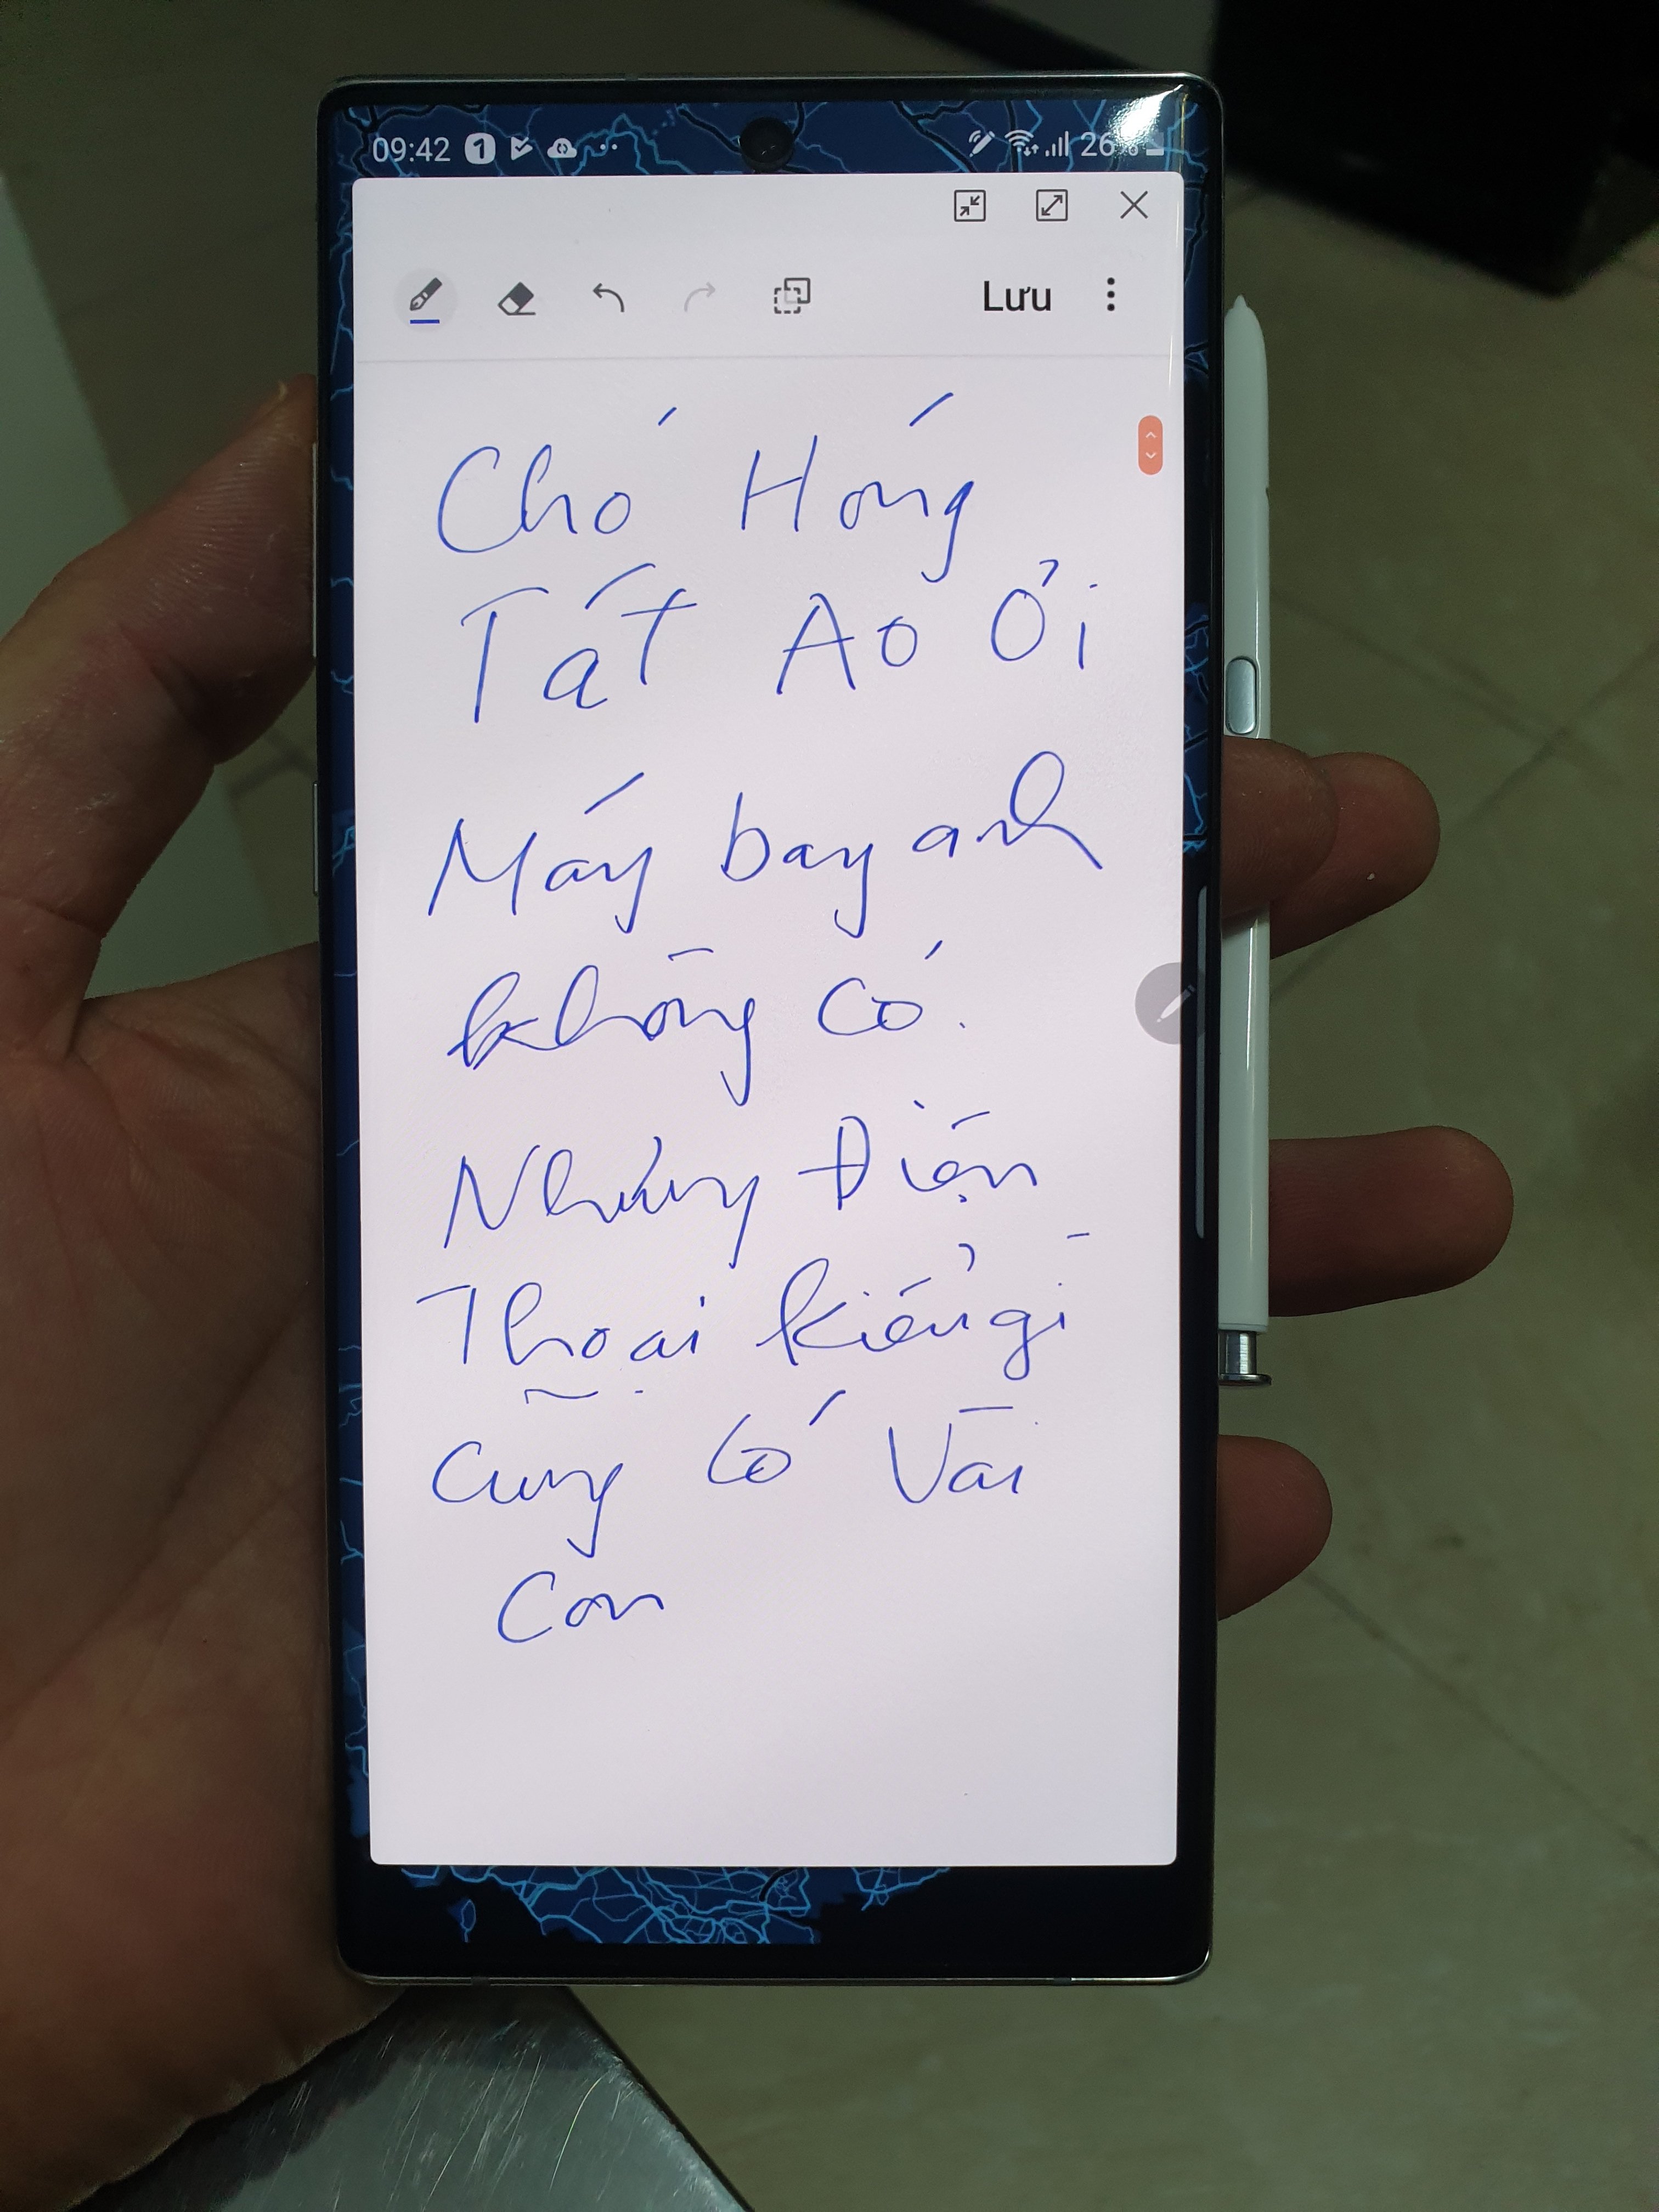 09:42 26%
Lưu
Chó Hóng
Tát Ao Ởi
Máy bay anh
không có.
Nhưng Điện
Thoại kiểu gì
cũng có Vài
Con